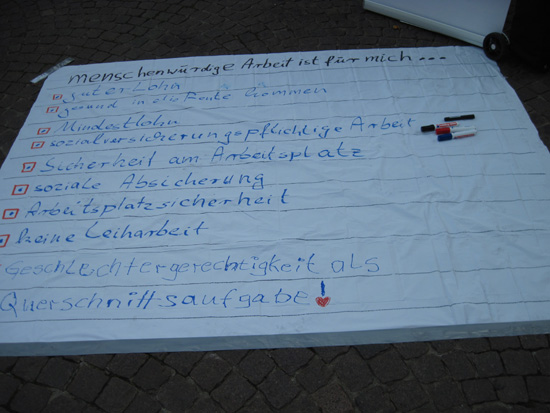 menschenwürdige Arbeit ist für mich...
guter Lohn
gesund in die Rente kommen
Mindestlohn
sozialversicherungspflichtige Arbeit
Sicherheit am Arbeitsplatz
soziale Absicherung
Arbeitsplatzsicherheit
keine Leiharbeit
Geschlechtergerechtigkeit als
Querschnittsaufgabe!